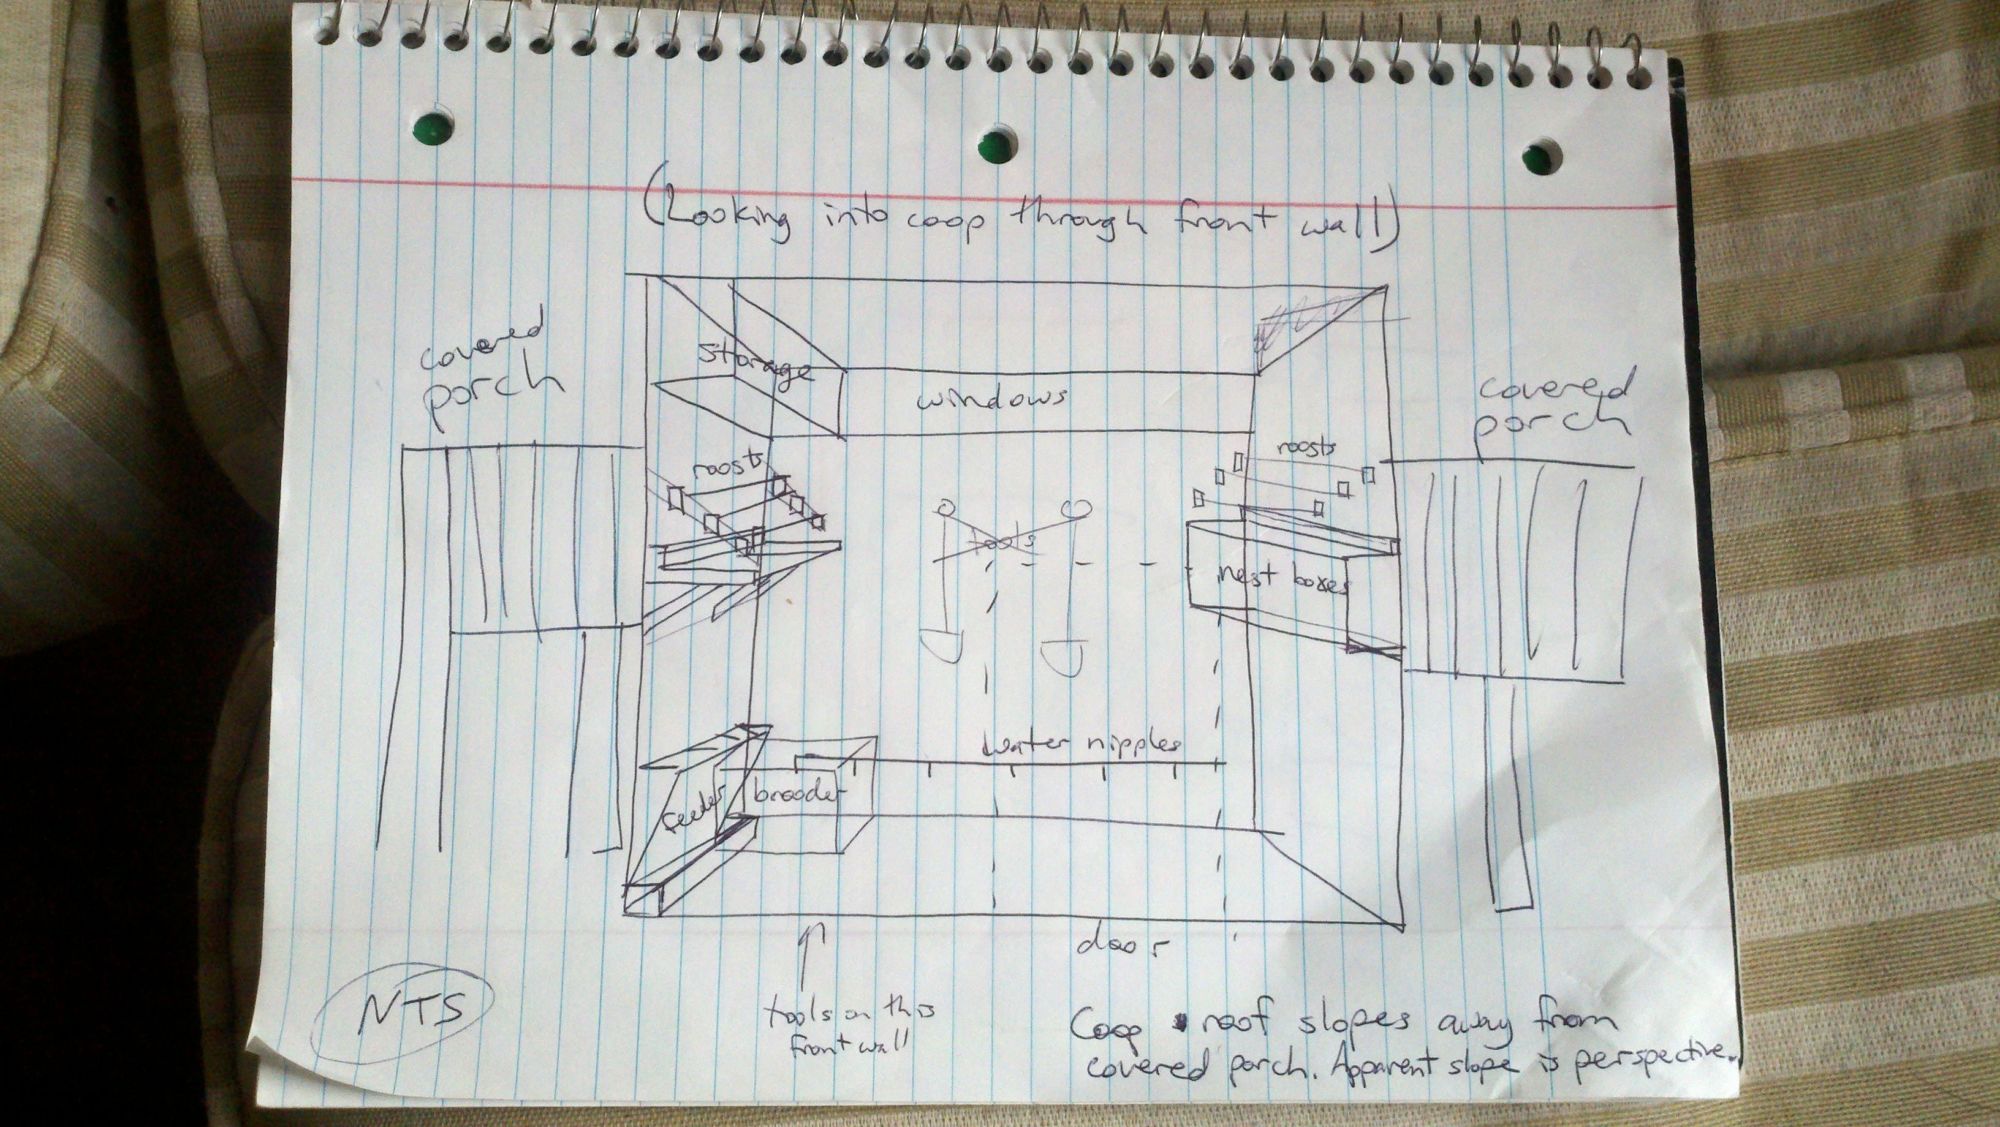 (Looking into coop through front wall)
covered
porch
storage
windows
covered
porch
roosts
roosts
tools
nest boxes
water nipples
feeder
brooder
door
NTS
tools on this
front wall
Coop roof slopes away from
covered porch. Apparent slope is perspective.